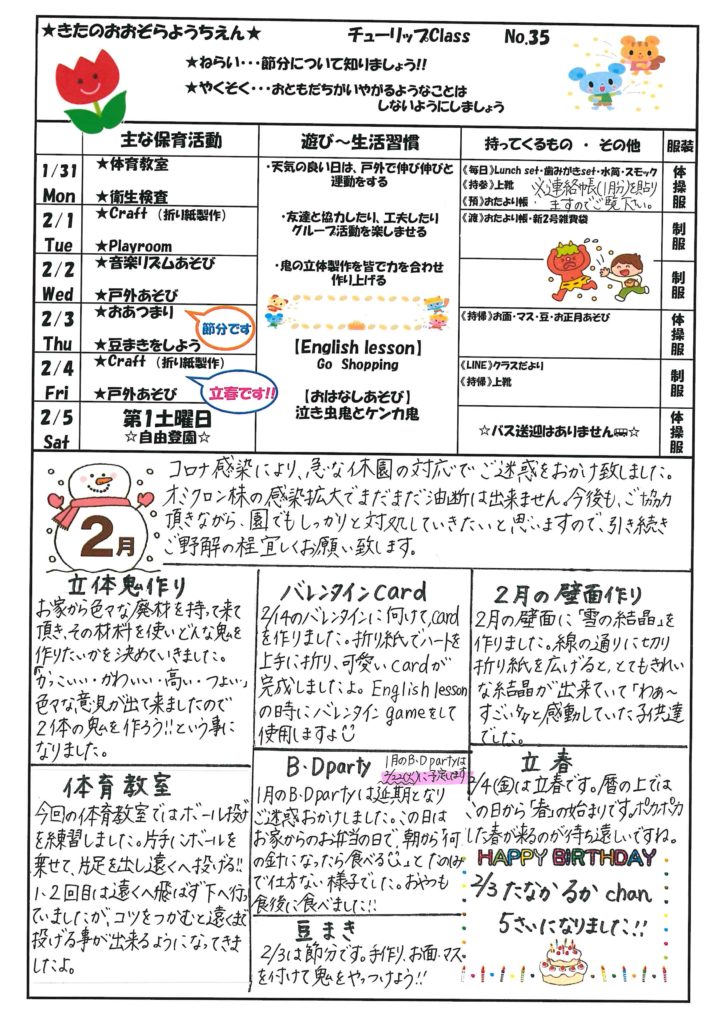 ★きたのおおぞらようちえん★ チューリップClass No.35
★ねらい・・・節分について知りましょう!!
★やくそく・・・おともだちがいやがるようなことは
しないようにしましょう
主な保育活動 遊び〜生活習慣 持ってくるもの ・ その他 服装
1/31 Mon
★体育教室
★衛生検査
・天気の良い日は、戸外で伸び伸びと
運動をする
《毎日》Lunch set・歯みがきset・水筒・スモック
《持参》上靴 ※連絡帳(1月分)を貼り
《預》おたより帳・ますのでご覧下さい。
体操服
2/1 Tue
★Craft (折り紙製作)
★Playroom
・友達と協力したり、工夫したり
グループ活動を楽しませる
《渡》おたより帳・新2号雑費袋
制服
2/2 Wed
★音楽リズムあそび
★戸外あそび
・鬼の立体製作を皆で力を合わせ
作り上げる
制服
2/3 Thu
★おあつまり
★豆まきをしよう
節分です
《持帰》お面・マス・豆・お正月あそび
体操服
2/4 Fri
★Craft (折り紙製作)
★戸外あそび
立春です!!
【English lesson】
Go Shopping
《LINE》クラスだより
《持帰》上靴
制服
2/5 Sat
第1土曜日
☆自由登園☆
【おはなしあそび】
泣き虫鬼とケンカ鬼
☆バス送迎はありません☆
体操服
2月
コロナ感染により、急な休園の対応でご迷惑をおかけ致しました。
オミクロン株の感染拡大でまだまだ油断は出来ません。今後も、ご協力
頂きながら、園でもしっかりと対処していきたいと思いますので、引き続き
ご野解の程宜しくお願い致します。
立体鬼作り
お家から色々な廃材を持って来て
頂き、その材料を使いどんな鬼を
作りたいかを決めていきました。
「かっこいい・かわいい・高い・つよい」
色々な意見が出て来ましたので
2体の鬼を作ろう!!という事に
なりました。
バレンタインcard
2/14のバレンタインに向けて、card
を作りました。折り紙でハートを
上手に折り、可愛いcardが
完成しましたよ。English lesson
の時にバレンタインgameをして
使用しますよ
2月の壁面作り
2月の壁面に「雪の結晶」を
作りました。線の通りに切り
折り紙を広げると、とてもきれい
な結晶が出来ていて「わぁ〜
すごい」と感動していた子供達
でした。
体育教室
今回の体育教室ではボール投げ
を練習しました。片手にボールを
乗せて、片足を出し遠くへ投げる!!
1、2回目は遠くへ飛ばず下へ行っ
ていましたが、コツをつかむと遠くまで
投げる事が出来るようになってきま
したよ。
B・Dparty
1月のB・Dpartyは
2/22(火)に予定します
1月のB・Dpartyは延期となり
ご迷惑おかけしました。この日は
お家からのお弁当の日で、朝から「何
の針になったら食べる。」とたのしみ
で仕方ない様子でした。おやつも
食後に食べました!!
豆まき
2/3は節分です。手作り、お面・マス
を付けて鬼をやっつけよう!!
立春
2/4(金)は立春です。暦の上では
この日から「春」の始まりです。ポカポカ
した春が来るのが待ち遠しいですね。
HAPPY BIRTHDAY
2/3 たなか るか chan
5さいになりました!!